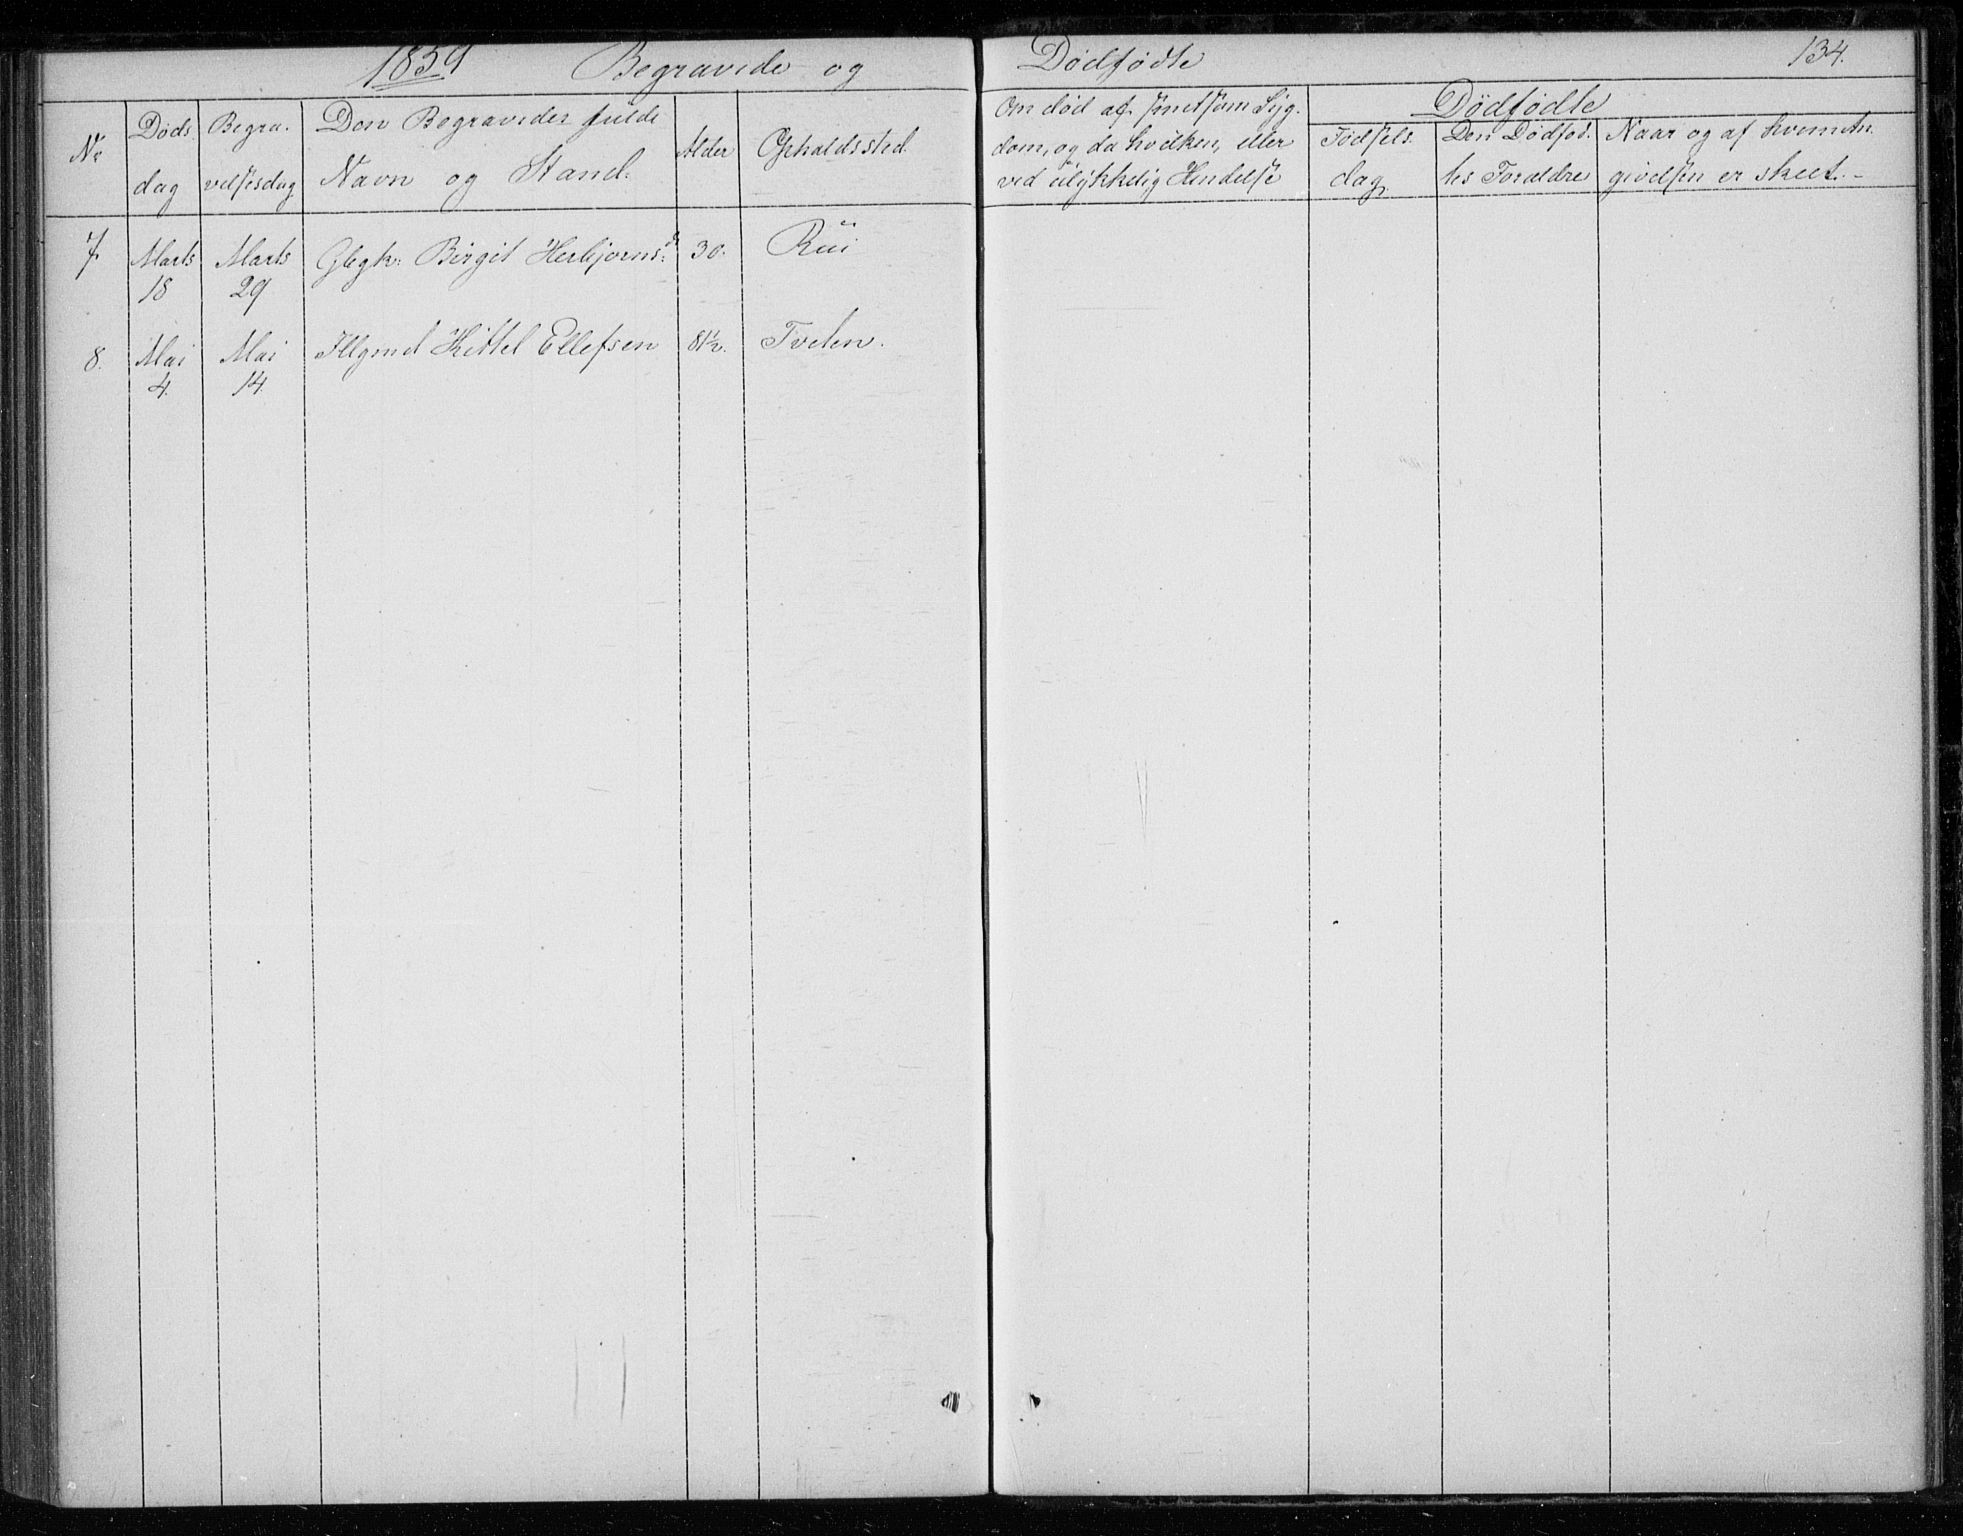 1859 Begravede og Dødfødte 134.
Nr
Døds dag
Begra. velsesdag
Den Begravedes fulde Navn og Stand.
Alder
Opholdssted
Om død af smitsom Syg. dom, og da hvilken, eller ved ulykkelig Hendelse
Dødfødte
Fødsels dag.
Den Dødfød. tes Forældre
Naar og af hvem An. givelsen er skeet. -
7 Marts 18 Marts 29 Glegk: Birgit Herbjørns: d 30. Rui
8. Mai 4. Mai 14. Kittel Ellefsen 81½. Tveten.